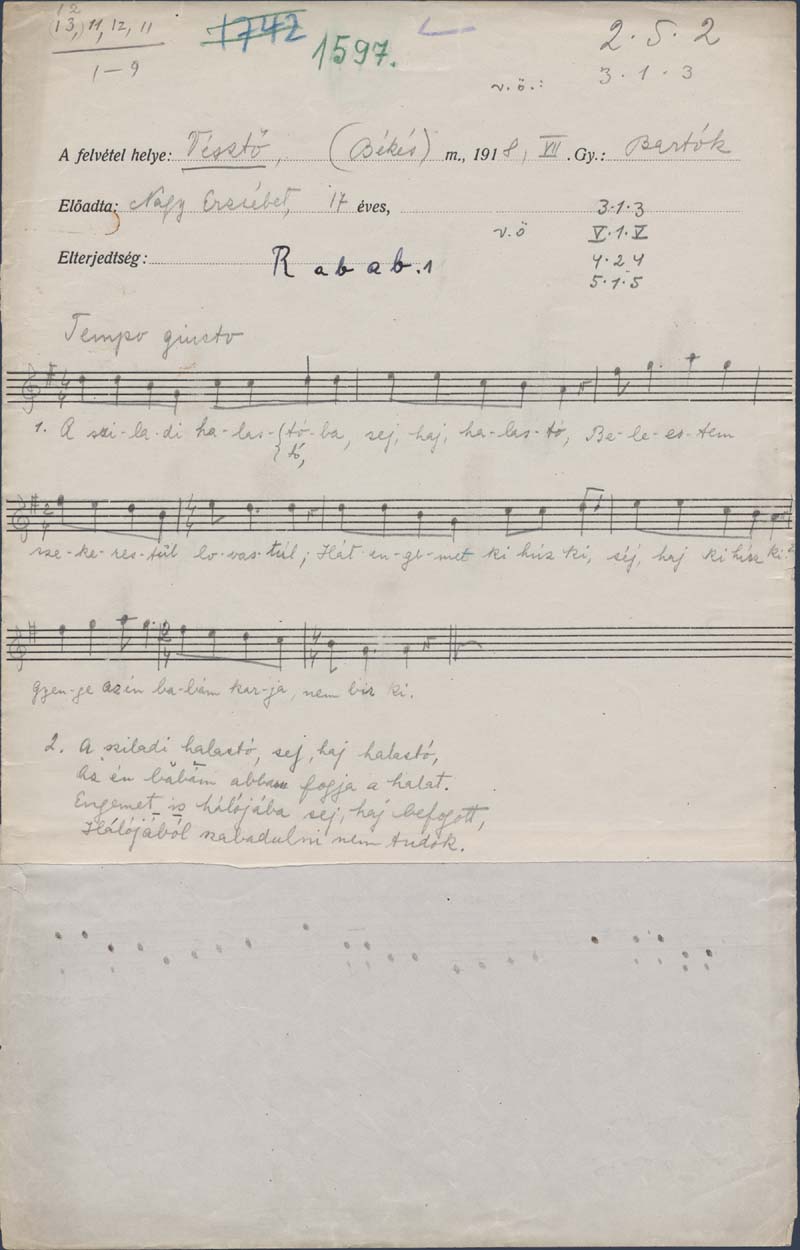 12
(13,) 11, 12, 11
1—9
1742
1597.
2·5·2
v.ö.: 3·1·3
A felvétel helye: Vésztő, (Békés) m., 1918, VII. Gy.: Bartók
Előadta: Nagy Erzsébet, 17 éves,
3·1·3
v.ö V·1·V
4·2·4
5·1·5
Elterjedtség: R a b a b . 1
Tempo giusto
1. A szi-la-di ha-las-{tó-ba, sej, haj, ha-las-tó, Be-le-es-tem
{tó,
sze-ke-res-tül lo-vas-túl; Hát en-ge-met ki húz ki, séj, haj ki húz ki?
Gyen-ge az én ba-bám kar-ja, nem bír ki.
2. A sziladi halastó, sej, haj halastó,
Az én babám abban fogja a halat.
Engemet is hálójába sej, haj befogott,
Hálójából szabadulni nem tudok.